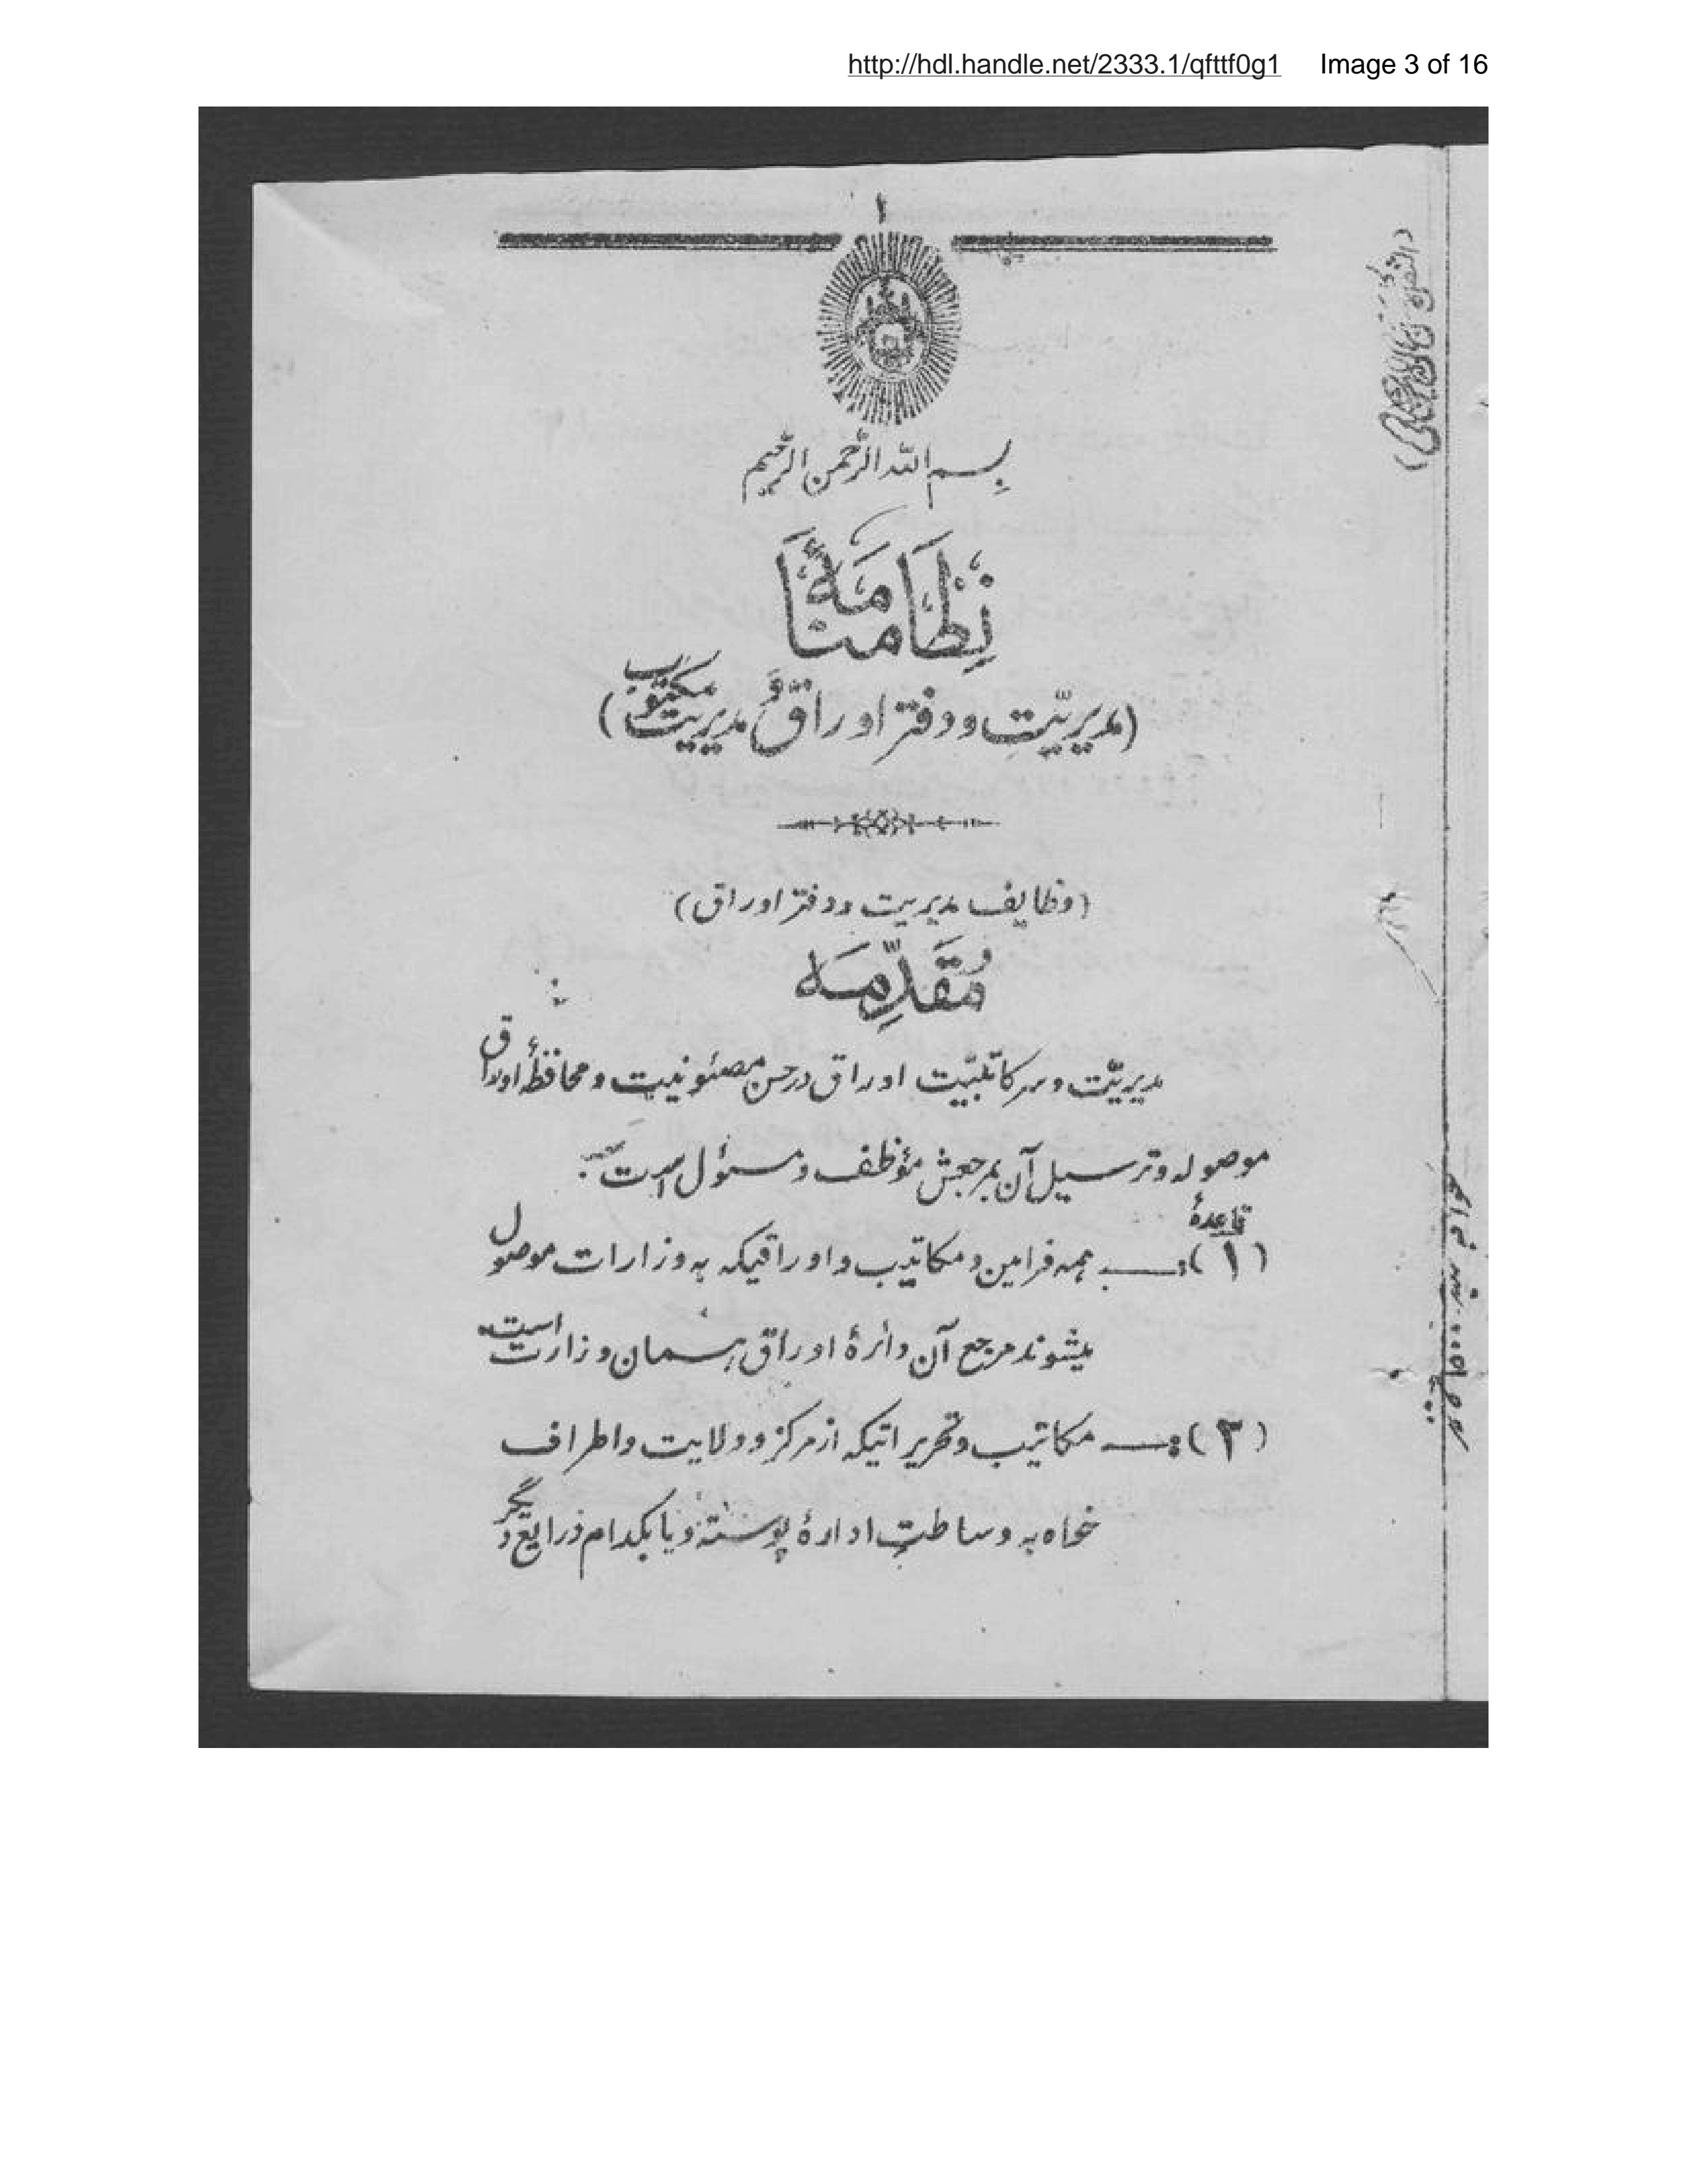 http://hdl.handle.net/2333.1/qfttf0g1 Image 3 of 16
۱
بسم الله الرّحمن الرّحیم
نِظَامنَامَهٔ
(مدیریّتِ و دفتر اوراق و مدیریت مکتوب)
(وظایف مدیریت و دفتر اوراق)
مُقَدِّمَه
مدیریّت و سرکاتبیّت اوراق در حسن مصئونیت و محافظهٔ اوراق
موصوله و ترسیل آن بمرجعش مؤظف و مسئول است
قاعدهٔ
(۱):— همه فرامین و مکاتیب و اوراقیکه به وزارات موصول
میشوند مرجع آن دائرهٔ اوراق همان وزارت است
(۳):— مکاتیب و تحریراتیکه از مرکز و ولایت و اطراف
خواه به وساطتِ ادارهٔ پوسته و یا بکدام ذرایع دیگر